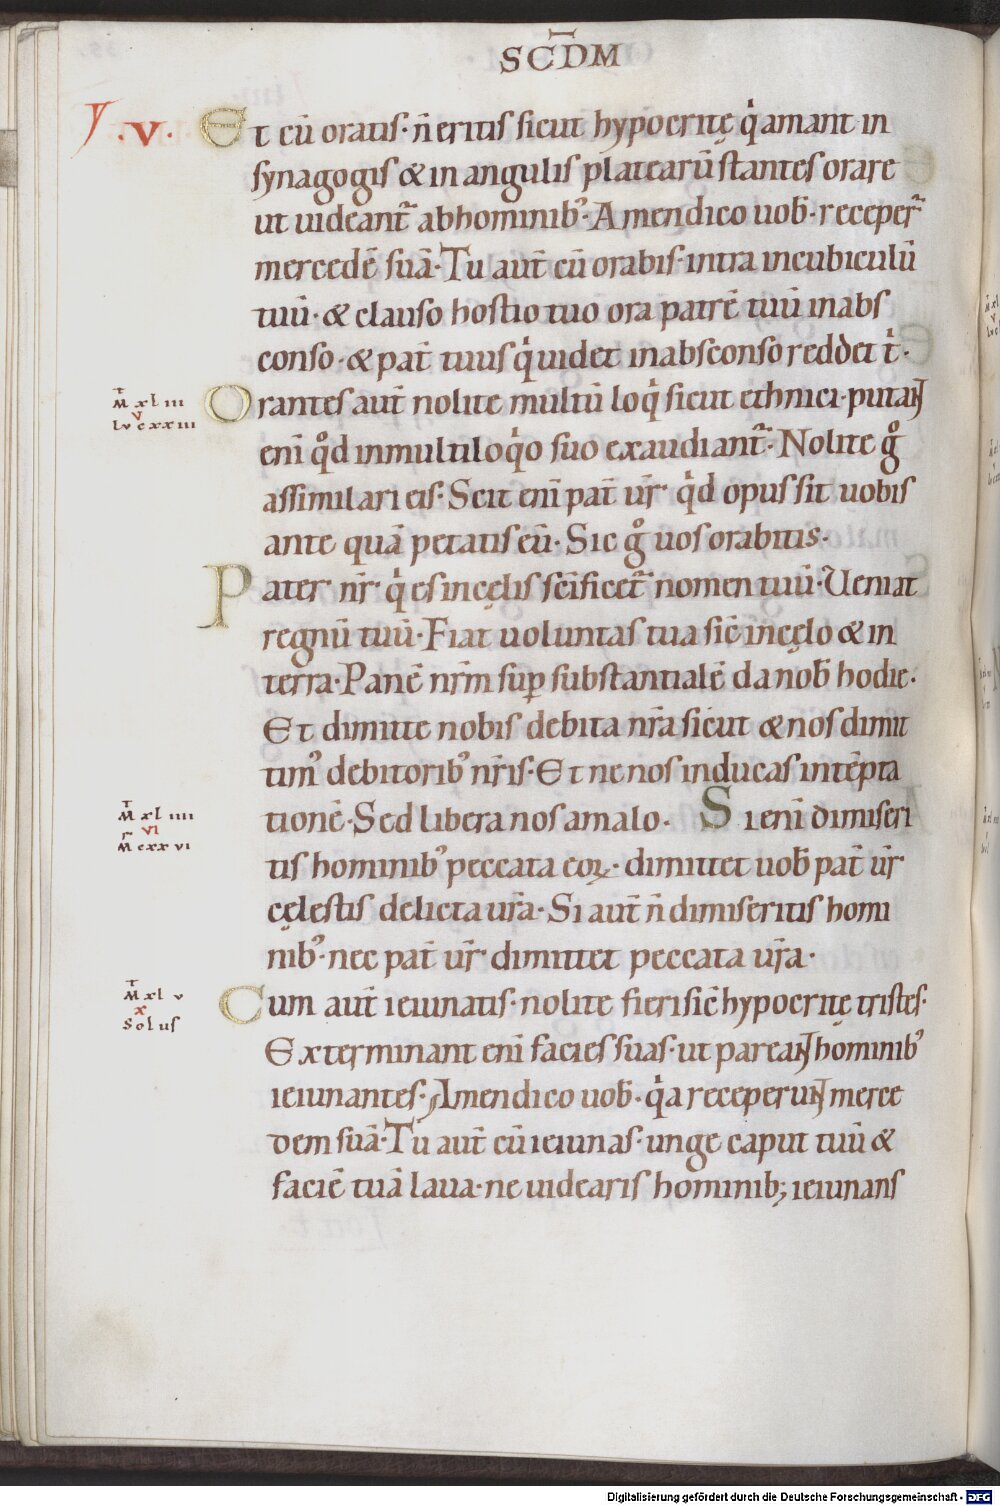 SC̄DM
.V. Et cū oratis· n̄ eritis sicut hypocritę qͥ amant in
synagogis & in angulis platearū stantes orare
ut uideant᷑ ab hominib᷒· Amen dico uob̄· receper᷑
mercedē suā· Tu aut̄ cū orabis· intra in cubiculū
tuū· & clauso hostio tuo ora patrē tuū in abs
conso· & pat̄ tuus qͥ uidet in absconso reddet t̄ͥ·
M̄ xliii
V
Lu cxxiii
Orantes aut̄ nolite multū loqͥ sicut ethnici· putaɴͭ
eni̅ qͦd in multiloqͥo suo exaudiant᷑· Nolite gͦ
assimilari eis· Scit eni̅ pat̄ ur̄ qͥd opus sit uobis
ante quā petatis eū· Sic gͦ uos orabitis·
Pater nr̄ qͥ es in cęlis sc̄ificet᷑ nomen tuū· Ueniat
regnū tuū· Fiat uoluntas tua sic̄ in cęlo & in
terra· Panē nr̄m suꝑ substantialē da nob̄ hodie·
Et dimitte nobis debita nr̄a sicut & nos dimit
tim᷒ debitorib᷒ nr̄is· Et ne nos inducas in tēpta
M̄ xliiii
VI
M̄r cxxvi
tionē· Sed libera nos a malo· Si eni̅ dimiseri
tis hominib᷒ peccata eoꝝ· dimittet uob̄ pat̄ ur̄
cęlestis delicta ur̄a· Si aut̄ n̄ dimiseritis homi
nib᷒· nec pat̄ ur̄ dimittet peccata ur̄a·
M̄ xlv
X
Solus
Cum aut̄ ieiunatis· nolite fieri sic̄ hypocritę tristes·
Exterminant eni̅ facies suas· ut pareaɴͭ hominib᷒
ieiunantes· Amen dico uob̄· qͥa receperuɴͭ merce
dem suā· Tu aut̄ cū ieiunas· unge caput tuū &
faciē tuā laua· ne uidearis hominib; ieiunans
Digitalisierung gefördert durch die Deutsche Forschungsgemeinschaft - DFG